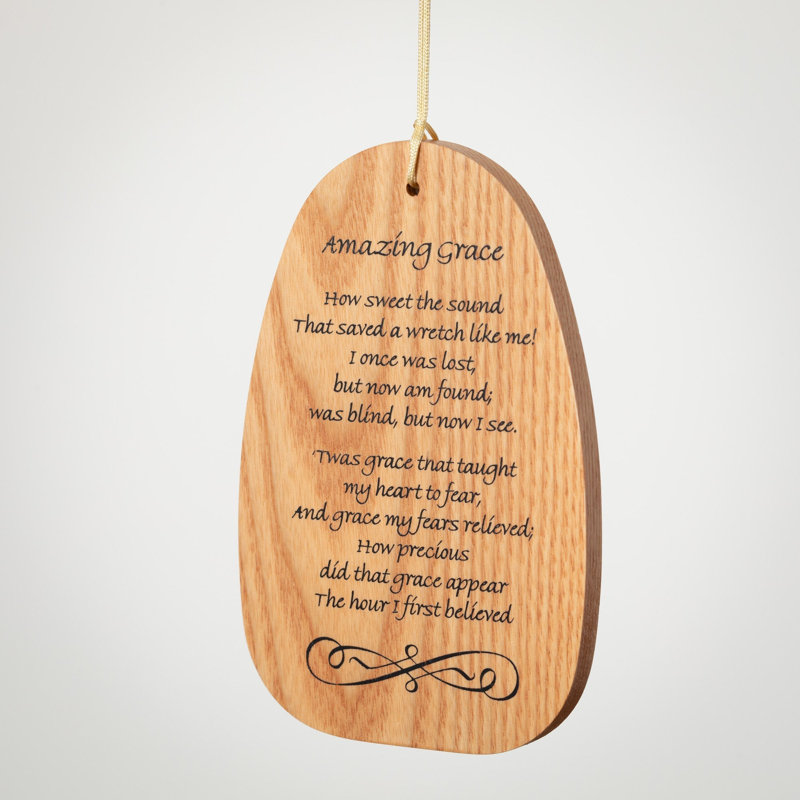 Amazing Grace
How sweet the sound
That saved a wretch like me!
I once was lost,
but now am found;
was blind, but now I see.
'Twas grace that taught
my heart to fear,
And grace my fears relieved;
How precious
did that grace appear
The hour I first believed